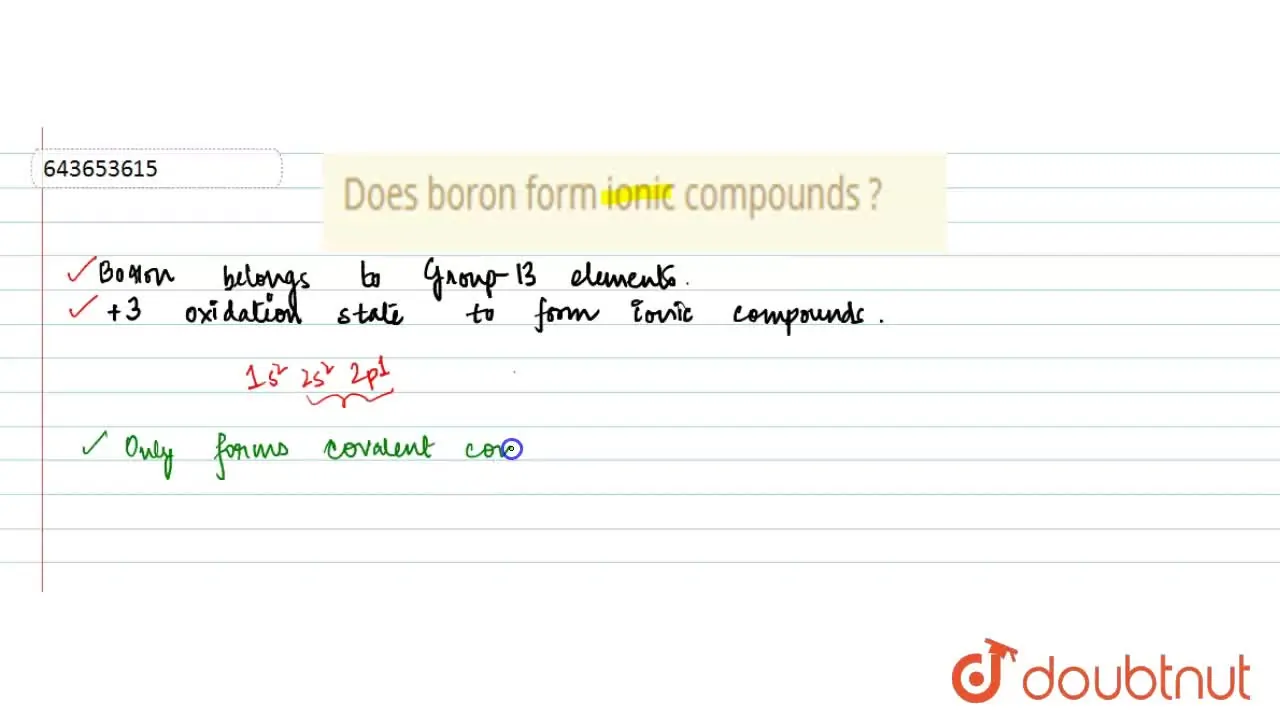 643653615
Does boron form ionic compounds ?
Boron belongs to Group-13 elements.
+3 oxidation state to form ionic compounds.
1s² 2s² 2p¹
Only forms covalent com
doubtnut